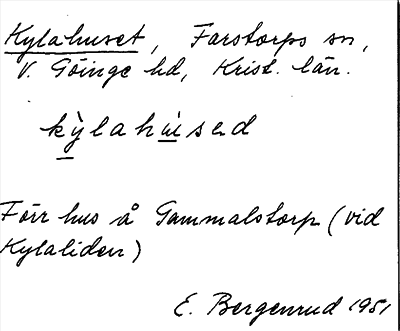 Kylahuset, Farstorps sn,
V. Göinge hd, Krist. län.
kỳlahùsəd
Förr hus å Gammalstorp (vid
Kylaliden)
E. Bergenrud 1951